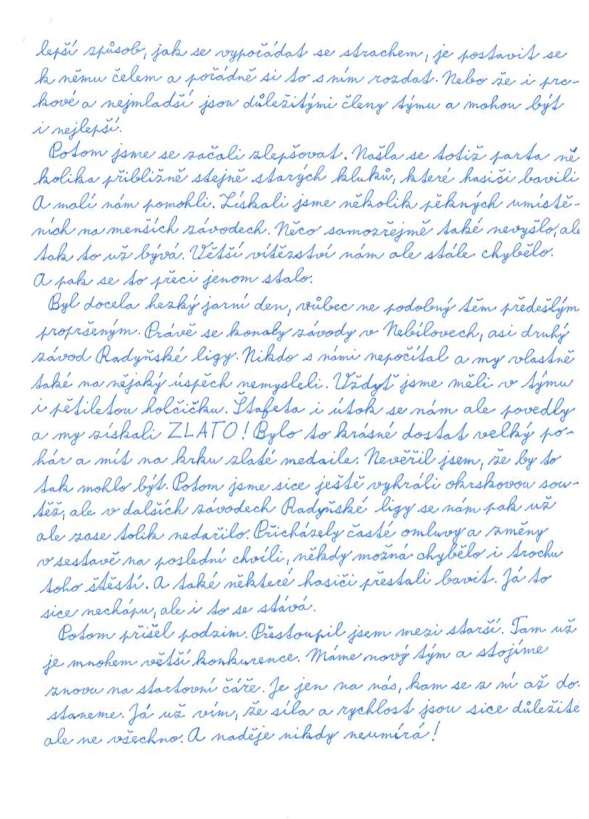 lepší způsob, jak se vypořádat se strachem, je postavit se
k němu čelem a pořádně si to s ním rozdat. Nebo že i prc-
kové a nejmladší jsou důležitými členy týmu a mohou být
i nejlepší.
Potom jsme se začali zlepšovat. Našla se totiž parta ně
kolika přibližně stejně starých kluků, které hasiči bavili
A malí nám pomohli. Získali jsme několik pěkných umístě-
ních na menších závodech. Něco samozřejmě také nevyšlo, ale
tak to už bývá. Větší vítězství nám ale stále chybělo.
A pak se to přeci jenom stalo.
Byl docela hezký jarní den, vůbec ne podobný těm předešlým
propršeným. Právě se konaly závody v Nebílovech, asi druhý
závod Radyňské ligy. Nikdo s námi nepočítal a my vlastně
také na nějaký úspěch nemysleli. Vždyť jsme měli v týmu
i pětiletou holčičku. Štafeta i útok se nám ale povedly
a my získali ZLATO! Bylo to krásné dostat velký po-
hár a mít na krku zlaté medaile. Nevěřil jsem, že by to
tak mohlo být. Potom jsme sice ještě vyhráli okrskovou sou-
těž, ale v dalších závodech Radyňské ligy se nám pak už
ale zase tolik nedařilo. Přicházely časté omluvy a změny
v sestavě na poslední chvíli, někdy možná chybělo i trochu
toho štěstí. A také některé hasiči přestali bavit. Já to
sice nechápu, ale i to se stává.
Potom přišel podzim. Přestoupil jsem mezi starší. Tam už
je mnohem větší konkurence. Máme nový tým a stojíme
znovu na startovní čáře. Je jen na nás, kam se z ní až do-
staneme. Já už vím, že síla a rychlost jsou sice důležité
ale ne všechno. A naděje nikdy neumírá!